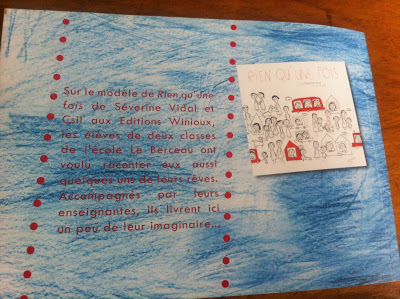 Sur le modèle de Rien qu'une
fois de Séverine Vidal et
Csil aux Editions Winioux,
les élèves de deux classes
de l'école Le Berceau ont
voulu raconter eux aussi
quelques uns de leurs rêves.
Accompagnés par leurs
enseignantes, ils livrent ici
un peu de leur imaginaire...
RIEN QU'UNE FOIS